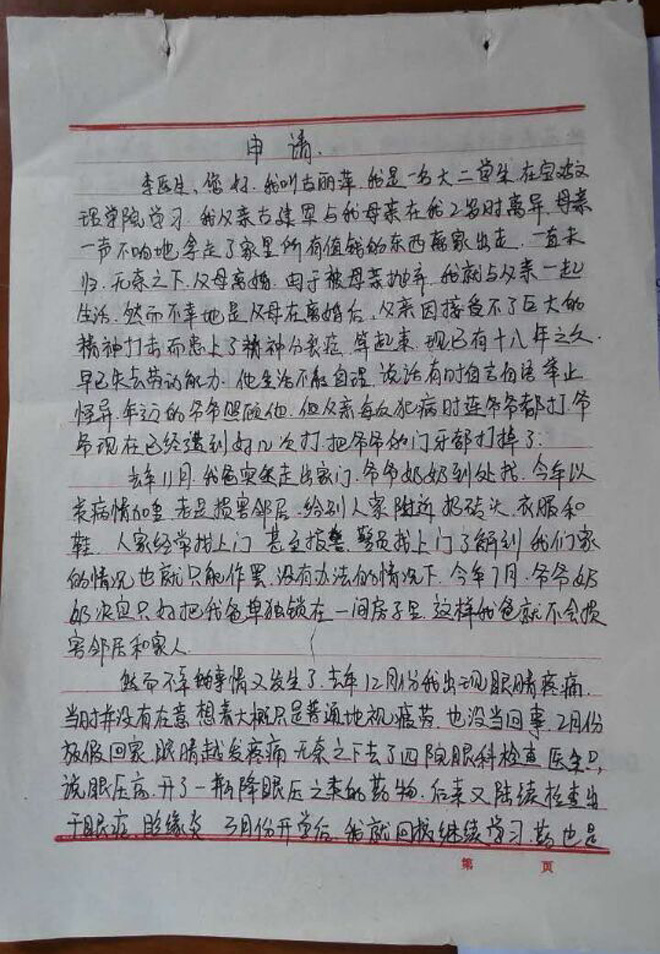 申请.
李医生、您好.我叫古丽萍.我是一名大二学生.在宝鸡文
理学院学习.我父亲古建军与我母亲在我2岁时离异.母亲
一声不响地拿走了家里所有值钱的东西离家出走.一直未
归.无奈之下.父母离婚.由于被母亲抛弃.我就与父亲一起
生活.然而不幸地是父母在离婚后.父亲因接受不了巨大的
精神打击而患上了精神分裂症.算起来.现已有十八年之久.
早已失去劳动能力.他生活不能自理.说话有时自言自语.举止
怪异.年迈的爷爷照顾他.但父亲每次犯病时连爷爷都打.爷
爷现在已经遭到好几次打.把爷爷的门牙都打掉了.
去年11月.我爸突然走出家门.爷爷奶奶到处找.今年以
来病情加重.老是损害邻居.给别人家附近扔砖头.衣服和
鞋.人家经常找上门.甚至报警.警员找上门了解到我们家
的情况也就只能作罢.没有办法的情况下.今年7月.爷爷奶
奶决定只好把我爸单独锁在一间房子里.这样我爸就不会损
害邻居和家人.
然而不幸的事情又发生了.去年12月份我出现眼睛疼痛.
当时并没有在意.想着大概只是普通地视疲劳.也没当回事.2月份
放假回家.眼睛越发疼痛.无奈之下去了四院眼科检查.医生只
说眼压高.开了一瓶降眼压之类的药物.后来又陆续检查出
干眼症.睑缘炎.3月份开学后.我就回校继续学习.药也是
第 页